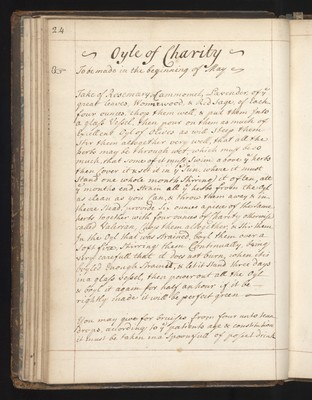 24
Oyle of Charity
To be made in the beginning of May
Take of Rosemary, Cammomel, Lavender, of yᵉ
great leaves, Wormwood, & Red Sage, of Each
four ounces, chopp them well, & put them Into
a glass Vessel, then pour on them as much of
Excellent Oyl of Olives as will Steep them
Stir them altogether very well, that all the
herbs may be through wet, which may be so
much, that some of it must Swim above yᵉ herbs
then Cover it & set it in yᵉ Sun, where it must
Stand one whole month Stirring it often, att
yᵉ months end, strain all yᵉ herbs from the Oyl
as clean as you Can, & throw them away & in
their Stead, provide six ounces apeece of the same
herbs together with four ounces of Charity otherwise
called Vahrian, chop them altogether, & put them
In the Oyl that was strained, boyl them over a
soft fire Stirring them Continually, being
very carefull that it does not burn, when it is
boyled Enough Strain it, & let it Stand three days
in a glass Vessel, then pour out all the Oyl
& boyl it again for half an hour if it be
rightly made it will be perfect green
You may give for bruises from four unto
Drops, according to yᵉ patients age & constitution
it must be taken in a Spoonfull of posset drink